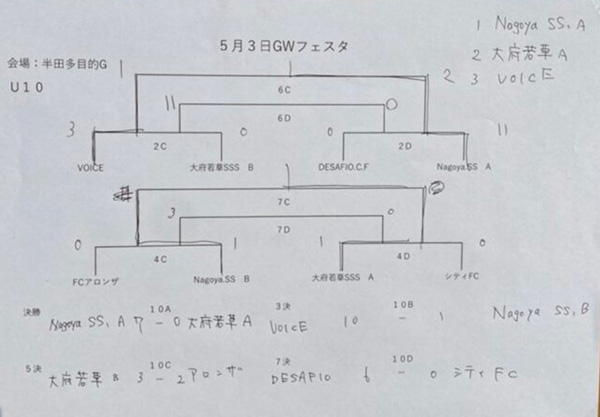 5月3日GWフェスタ
1 Nagoya SS. A
会場：半田多目的G
2 大府若草 A
U10
3 VOICE
1 6C 2
11 6D 0
3 2C 0 0 2D 11
VOICE 大府若草SSS B DESAFIO.C.F Nagoya.SS A
7C
3 7D 0
0 4C 1 1 4D 0
FCアロンザ Nagoya.SS B 大府若草SSS A シティFC
決勝 10A 3決 10B
Nagoya SS. A 7 - 0 大府若草 A VOICE 10 - 1 Nagoya SS, B
5決 10C 7決 10D
大府若草 B 3 - 2 アロンザ DESAFIO 6 - 0 シティ FC